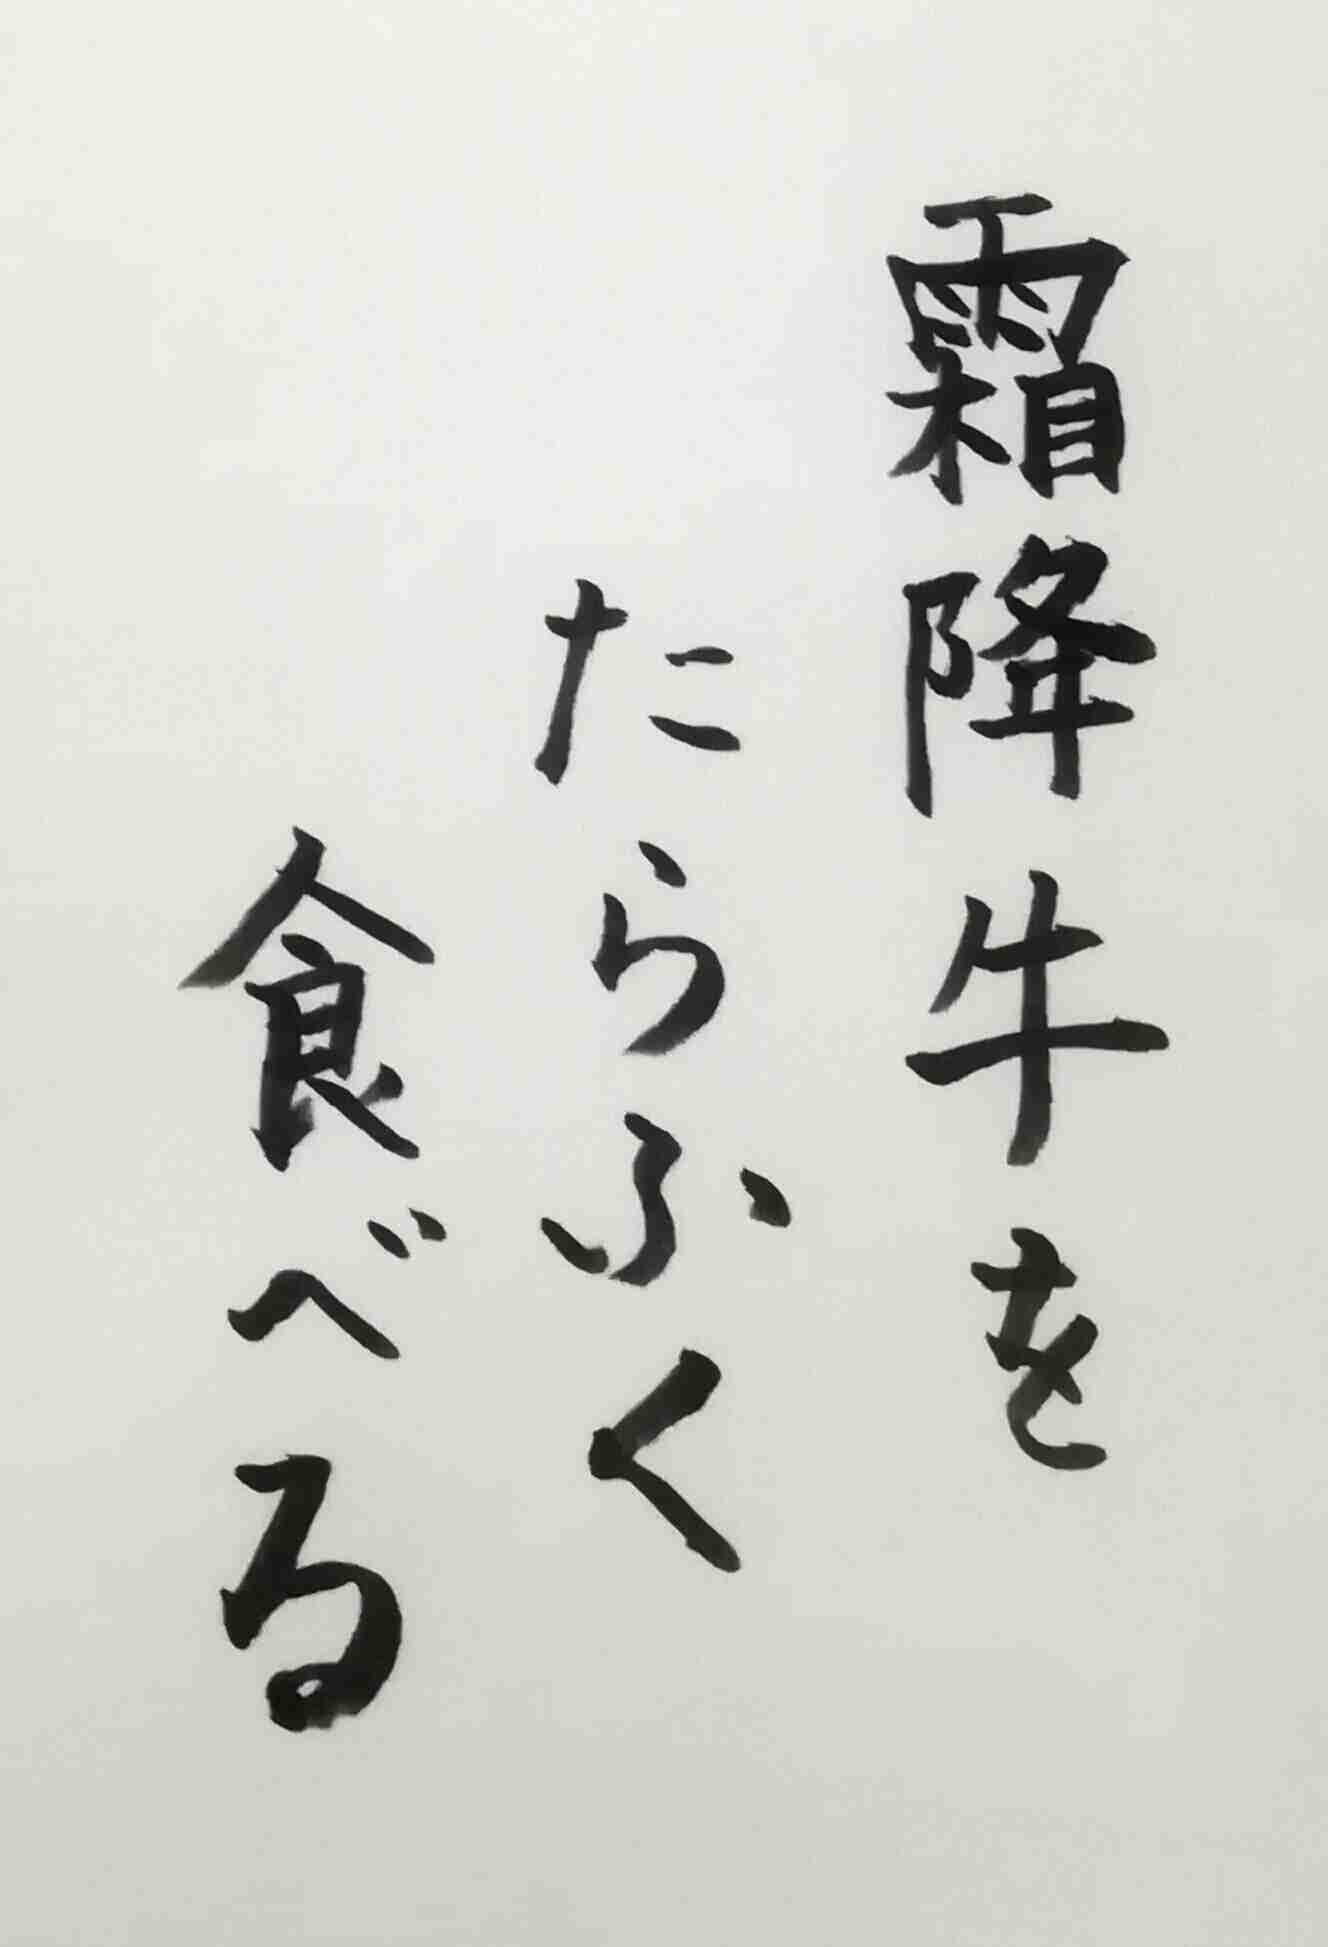 霜降牛を
たらふく
食べる